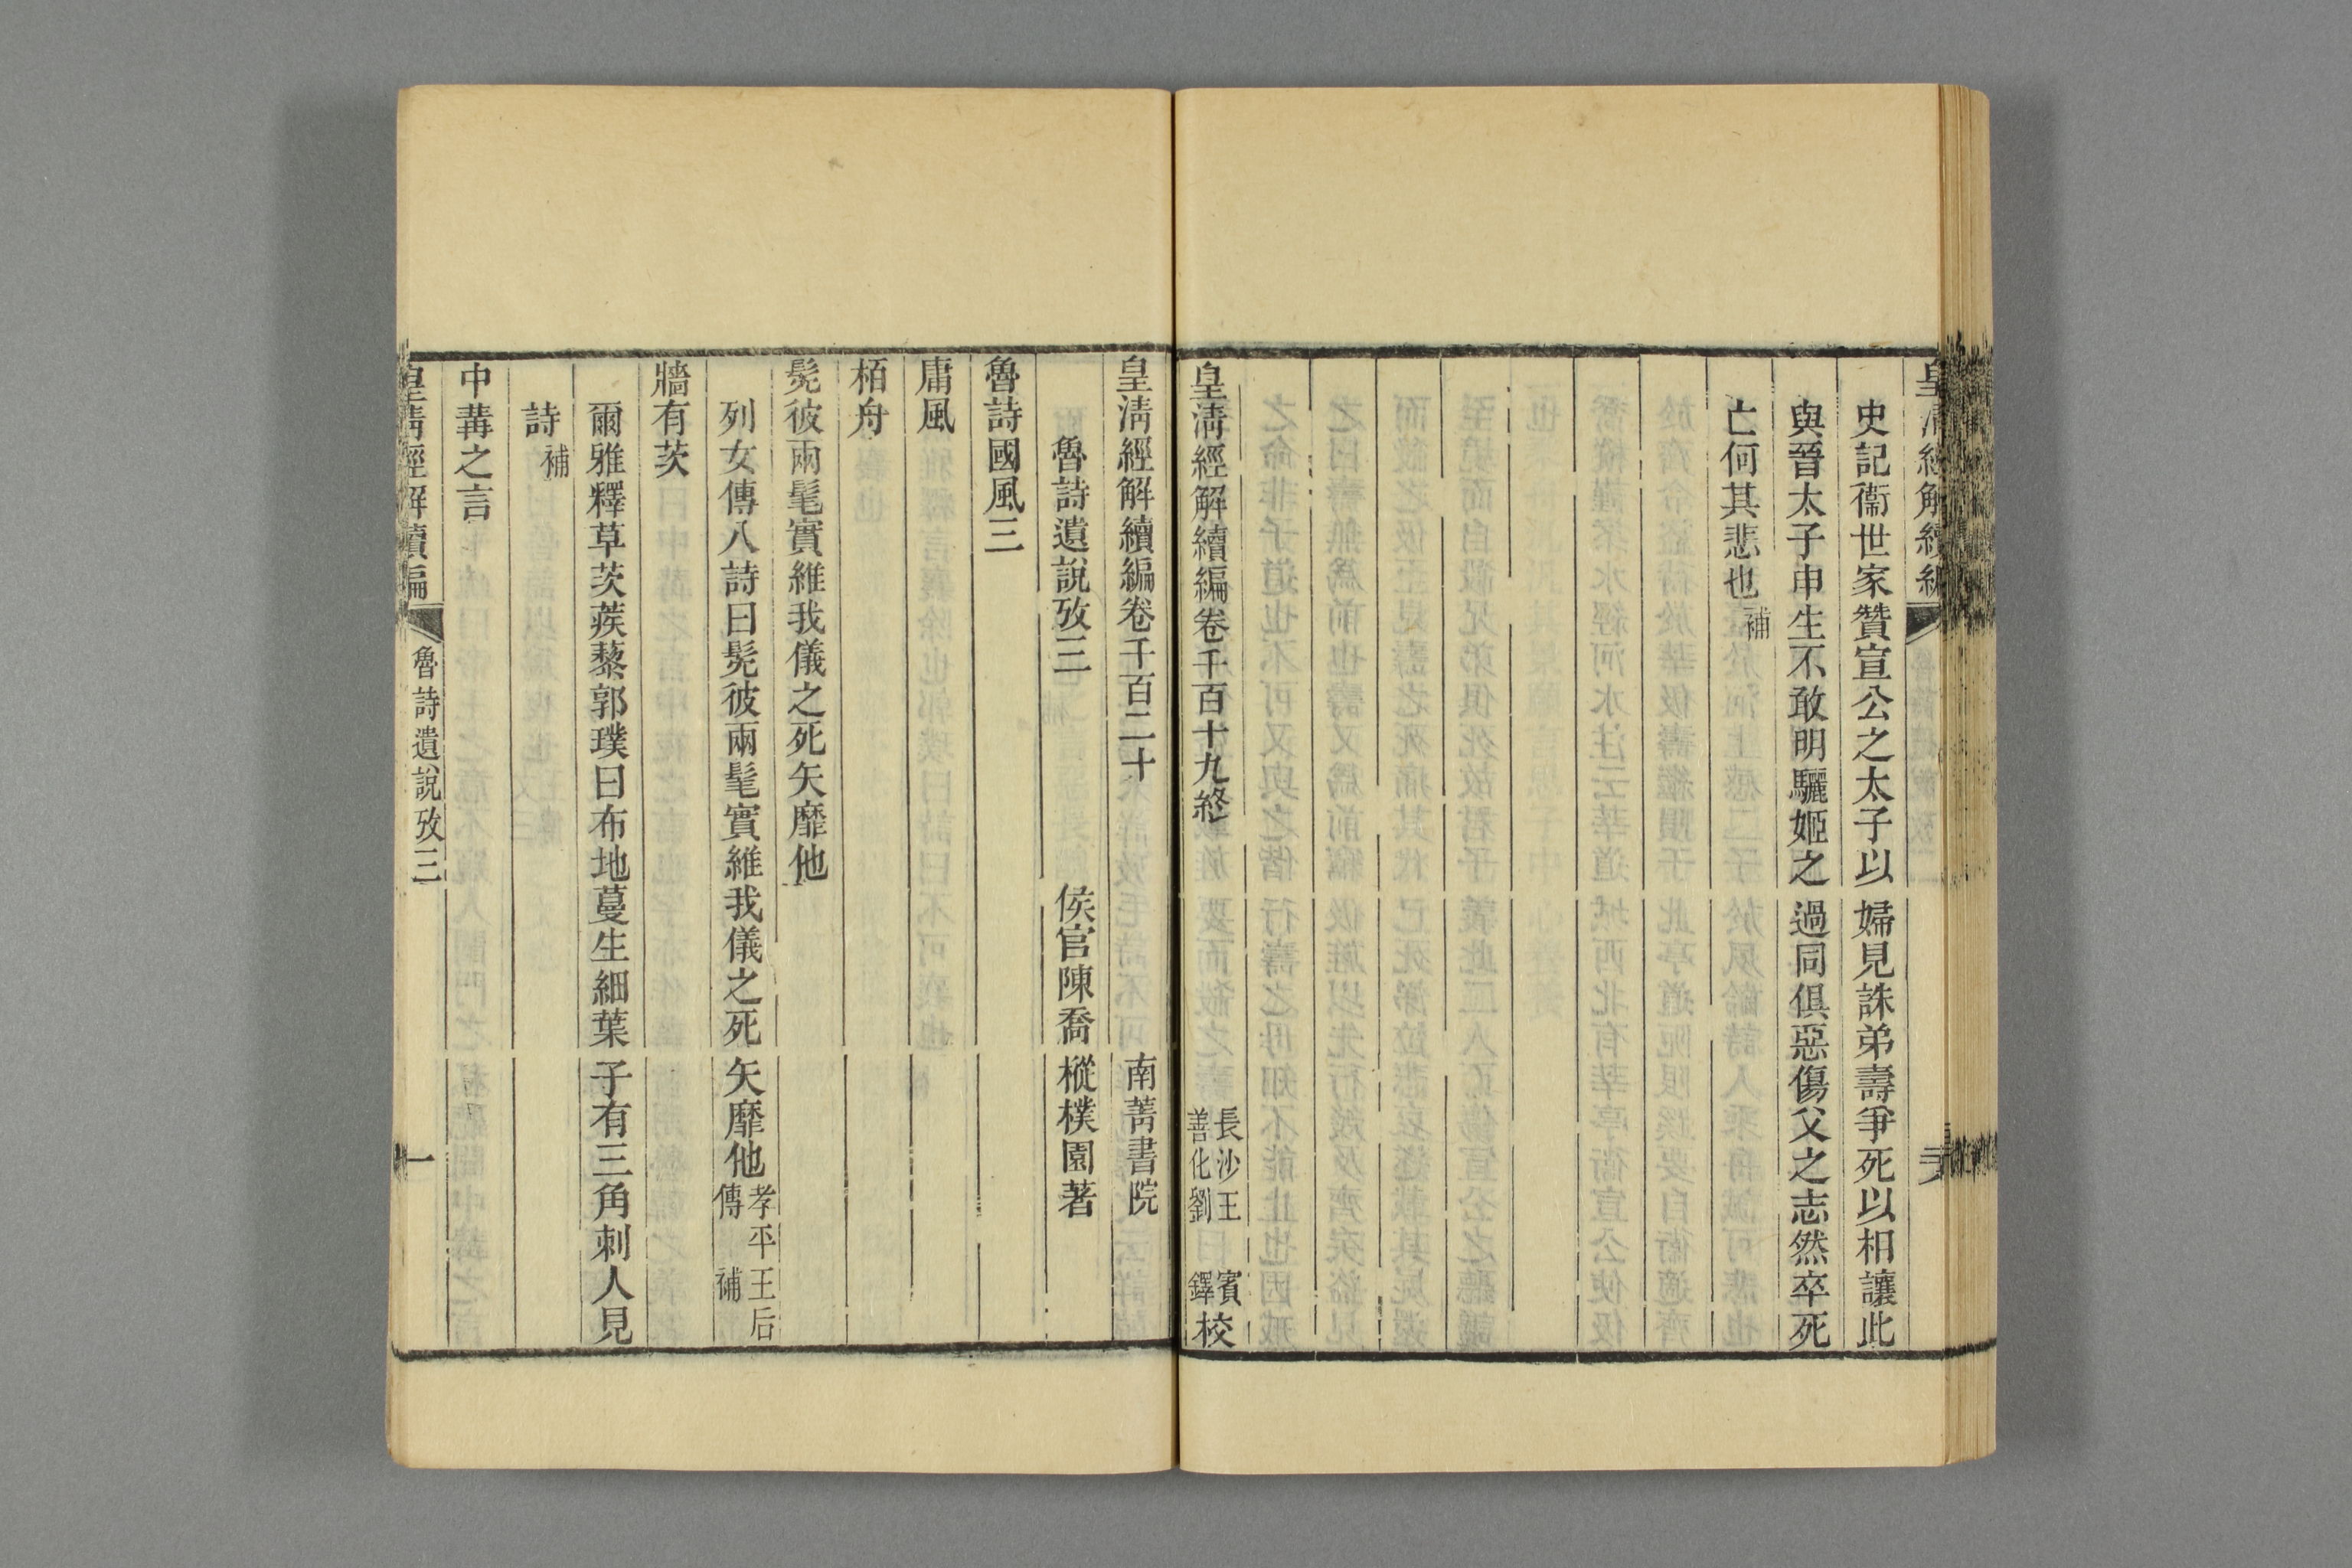 史記衞世家贊宣公之太子以婦見誅弟壽爭死以相讓此
與晉太子申生不敢明驪姬之過同俱惡傷父之志然卒死
亡何其悲也補
皇淸經解續編卷千百十九終
長沙王賓
善化劉鐸校
皇淸經解續編卷千百二十
南菁書院
魯詩遺說攷三
侯官陳喬樅樸園著
魯詩國風三
庸風
栢舟
髧彼兩髦實維我儀之死矢靡他
列女傳八詩曰髧彼兩髦實維我儀之死矢靡他孝平王后傳補
牆有茨
爾雅釋草茨蒺藜郭璞曰布地蔓生細葉子有三角刺人見
詩補
中冓之言
皇淸經解續編
魯詩遺說攷三
一